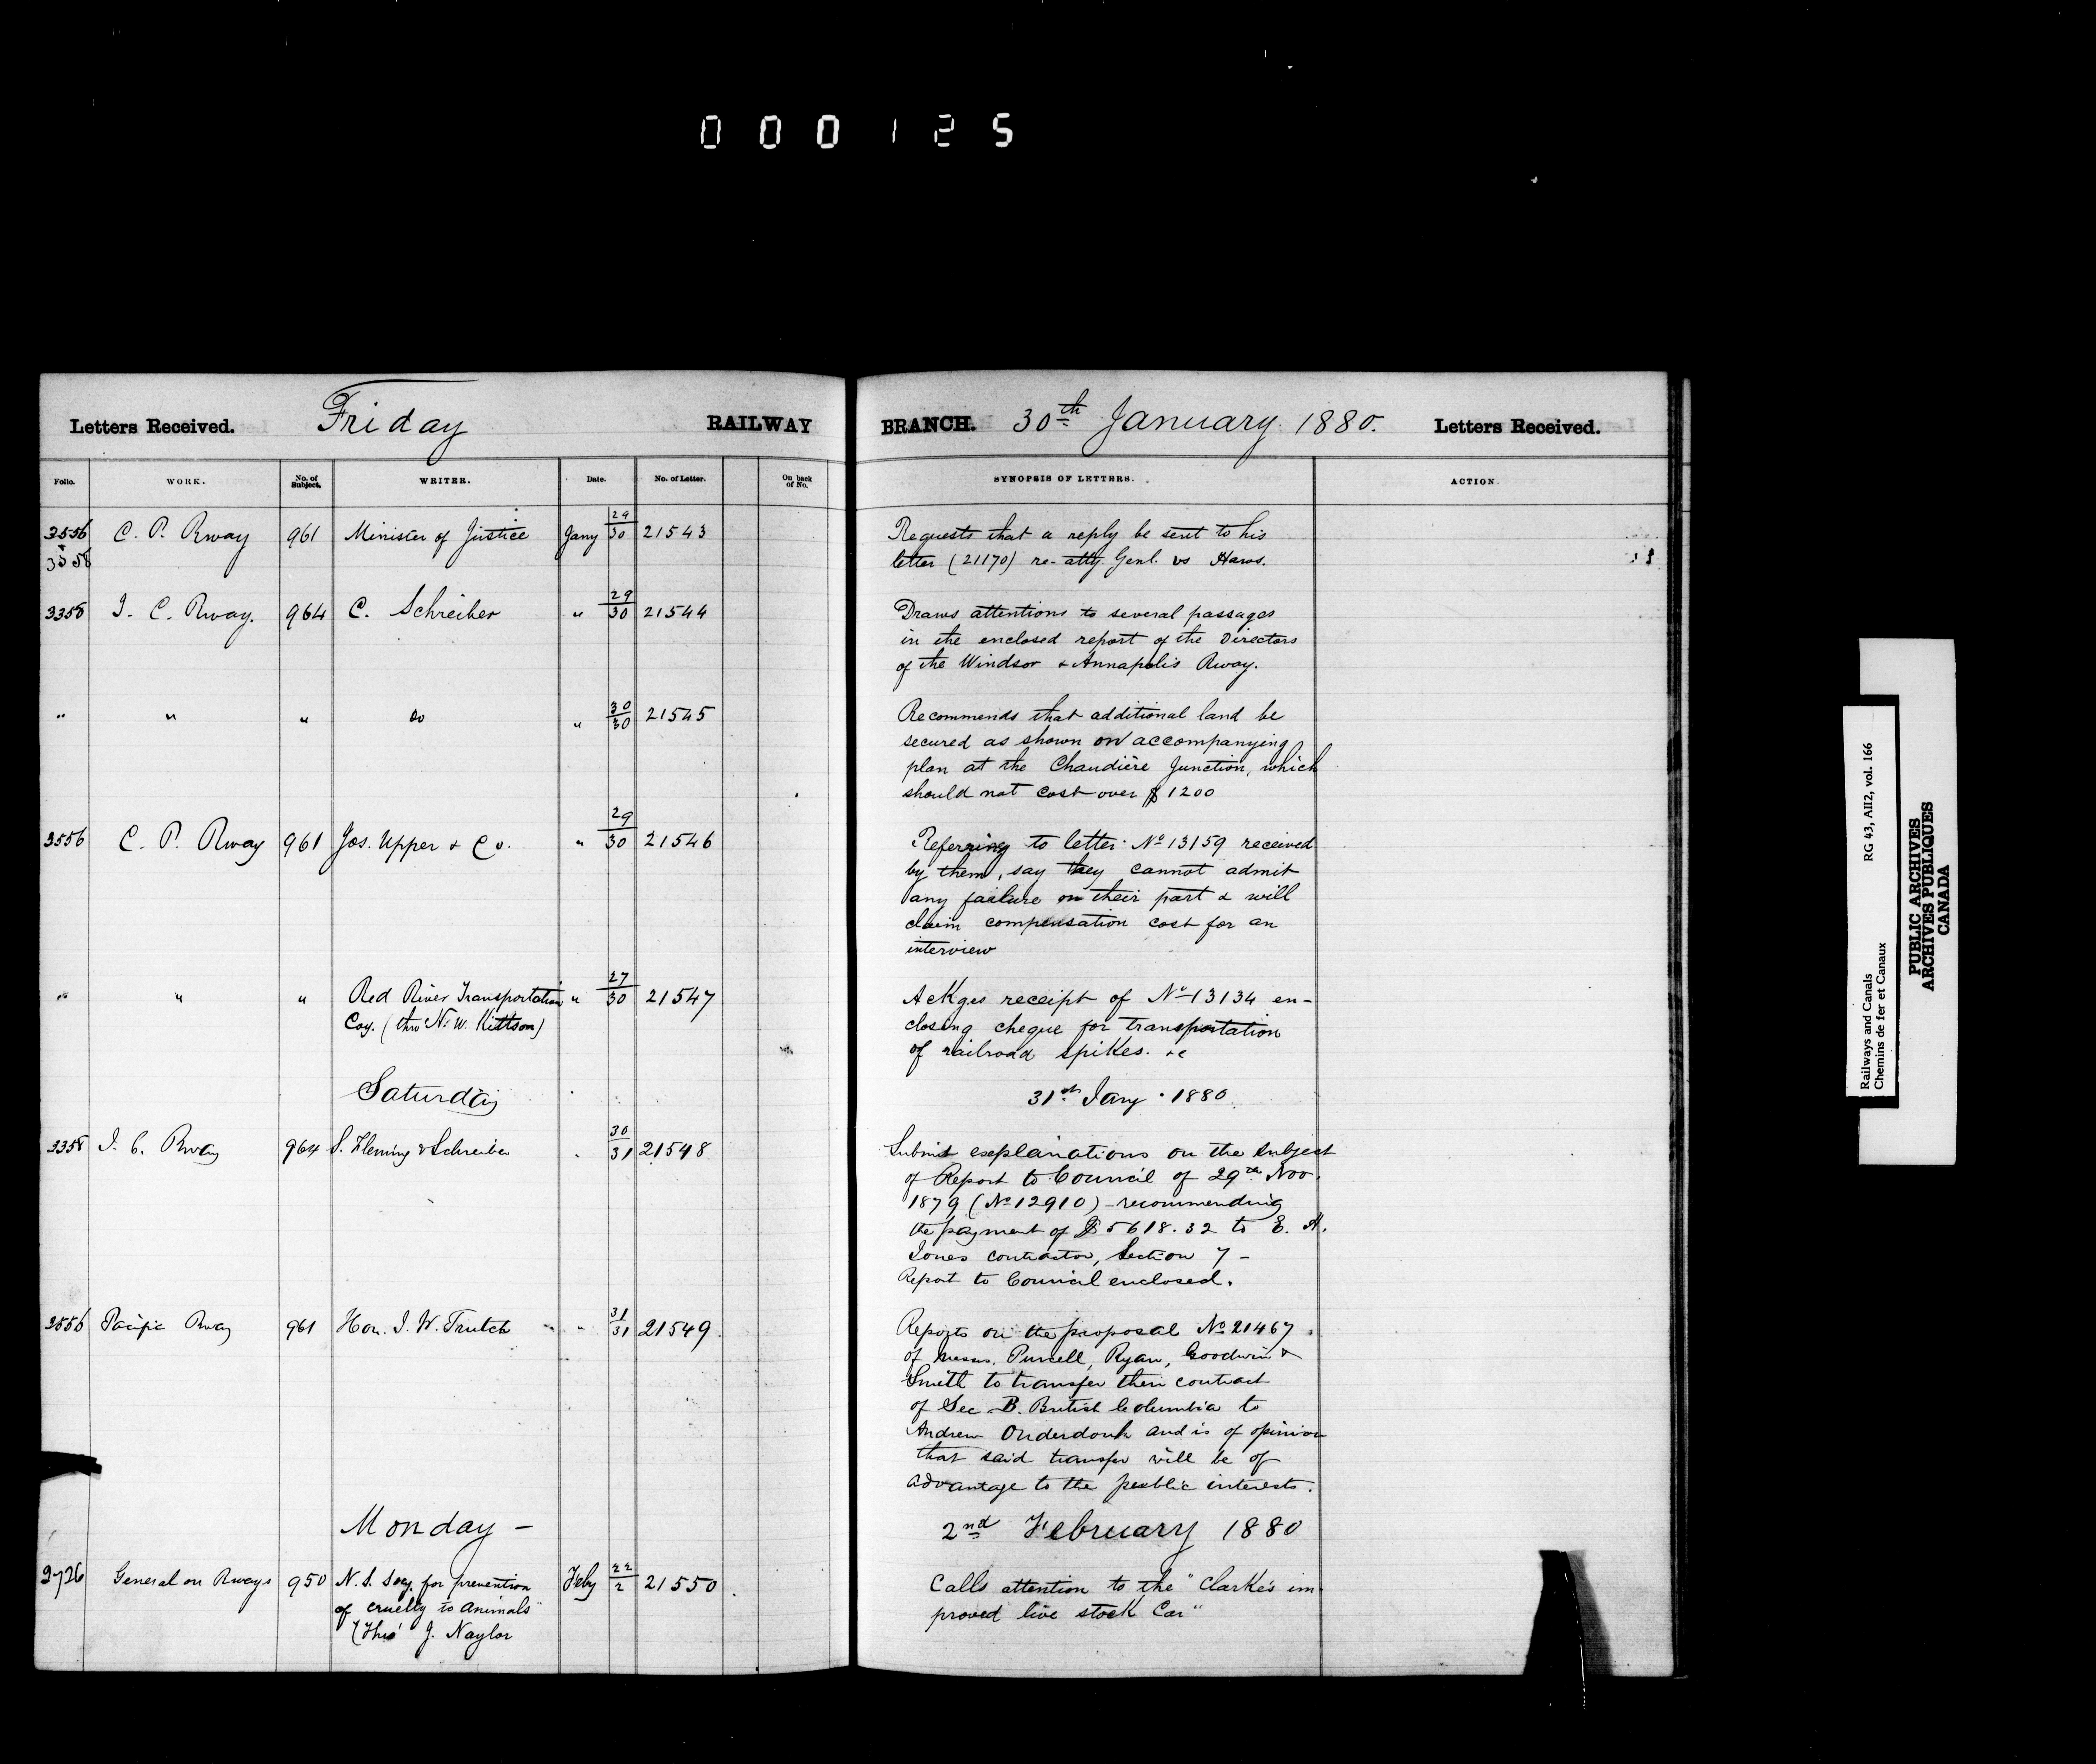 000125
Letters Received. Friday RAILWAY BRANCH. 30th January 1880. Letters Received.
Folio. WORK. No. of Subject. WRITER. Date. No. of Letter. On back of No. SYNOPSIS OF LETTERS. ACTION.
3556 C. P. Rway 961 Minister of Justice Jany 29/30 21543 Requests that a reply be sent to his
3558 letter (21170) re- atty. Genl. vs
3358 I. C. Rway. 964 C. Schreiber " 29/30 21544 Draws attentions to several passages
in the enclosed report of the Directors
of the Windsor & Annapolis Rway.
" " " do " 30/30 21545 Recommends that additional land be
secured as shown on accompanying
plan at the Chaudière Junction, which
should not cost over $1200
3556 C. P. Rway 961 Jos. Upper & Co. " 29/30 21546 Referring to letter No 13159 received
by them, say they cannot admit
any failure on their part & will
claim compensation cost for an
interview
" " " Red River Transportation " 27/30 21547 Ackges receipt of No 13134 en-
Coy. (thro N. W. Kittson) closing cheque for transportation
of railroad spikes. &c
Saturday 31st Jany. 1880
3358 I. C. Rway 964 S. Fleming & Schreiber 30/31 21548 Submit explanations on the subject
of Report to Council of 29th Nov.
1879 (No 12910) recommending
the payment of $5618.32 to E. A.
Jones contractor, Section 7 -
Report to Council enclosed.
3556 Pacific Rway 961 Hon. J. W. Trutch " 31/31 21549 Reports on the proposal No 21467
of Messrs. Purcell, Ryan, Goodwin &
Smith to transfer their contract
of Sec B. British Columbia to
Andrew Onderdonk and is of opinion
that said transfer will be of
advantage to the public interests.
Monday - 2nd February 1880
2726 General on Rways 950 N. S. Socy. for prevention Feby 22/2 21550 Calls attention to the "Clarke's im-
of cruelty to animals" proved live stock Car"
(Thro' J. Naylor
Railways and Canals RG 43, AII2, vol. 166
Chemins de fer et Canaux
PUBLIC ARCHIVES
ARCHIVES PUBLIQUES
CANADA